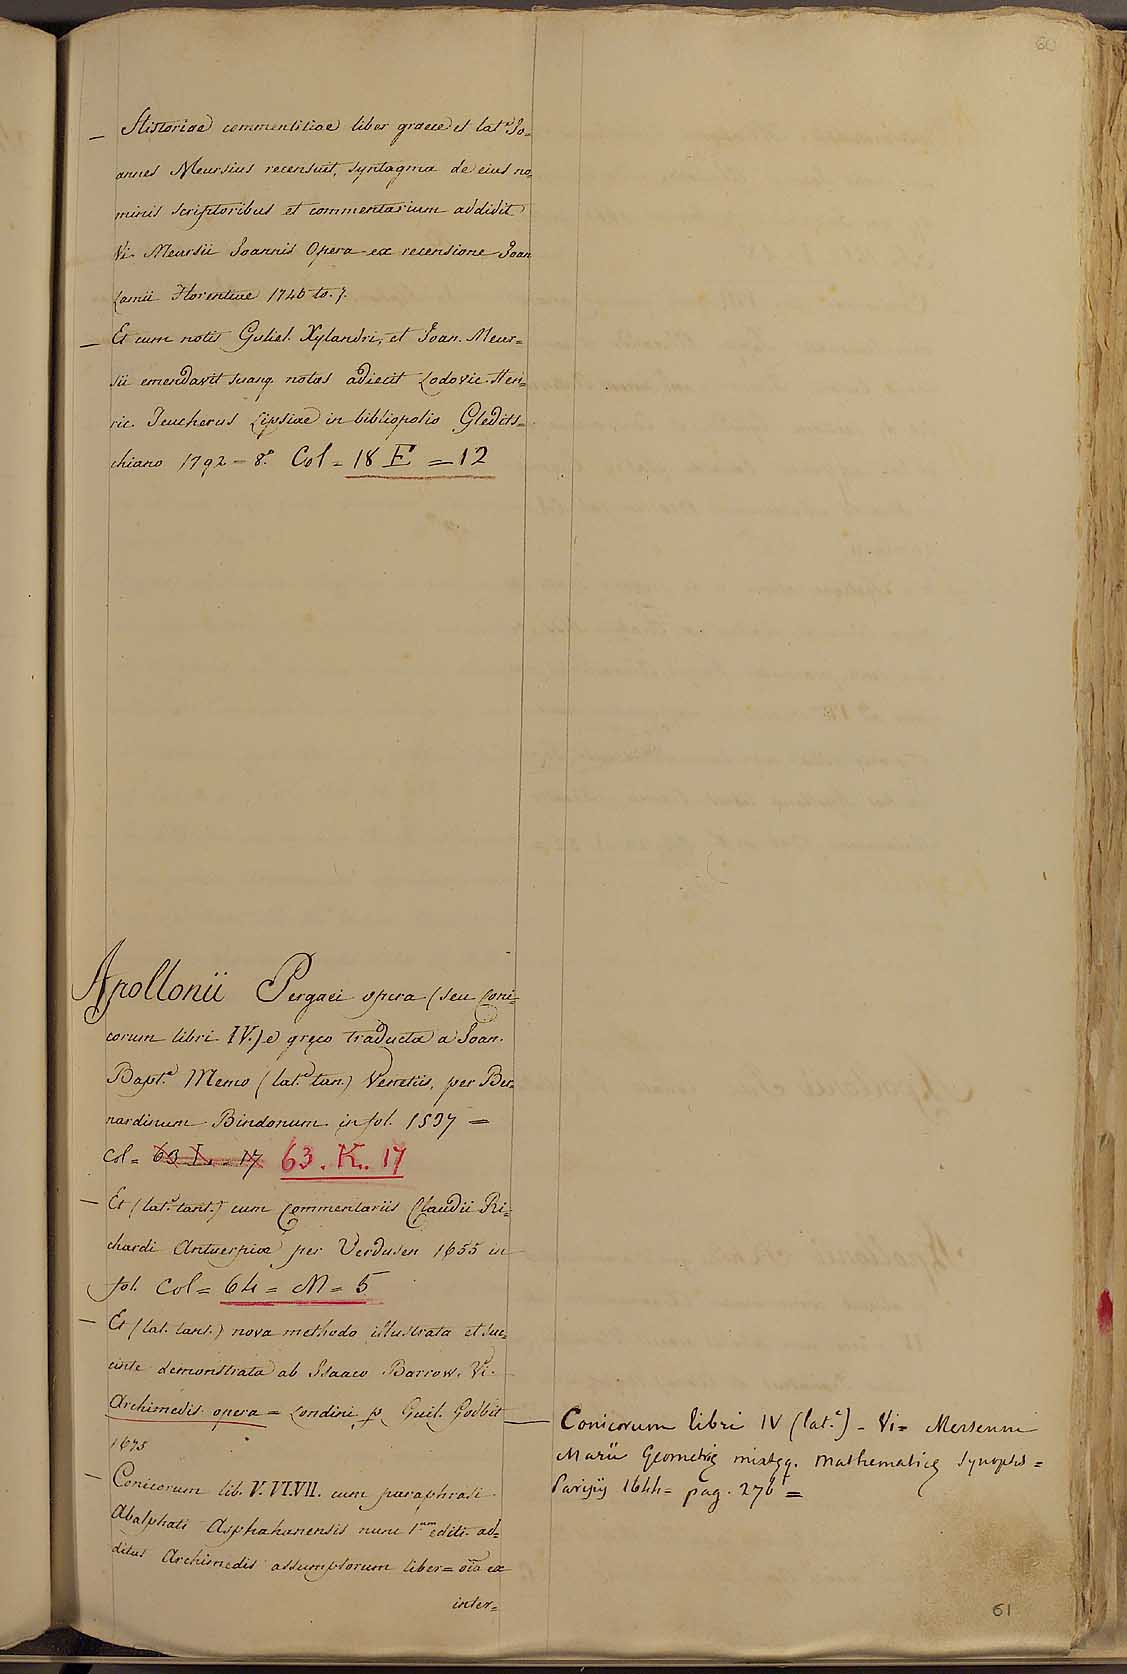 60
— Historiae commentitiae liber graece et lat.e Jo=
annes Meursius recensuit, syntagma de eius no=
minis scriptoribus et commentarium addidit
Vi. Meursii Joannis Opera ex recensione Joan
Lamii Florentiae 1746 to. 7.
— Et cum notis Guliel. Xylandri, et Joan. Meur=
sii emendavit suasq. notas adiecit Lodovic. Hen=
ric. Teucherus Lipsiae in bibliopolio Gledits=
chiano 1792 = 8.o Col = 18 E = 12
Apollonii Pergaei opera (seu Coni=
corum libri IV.) e gręco traducta a Joan.
Bapt.a Memo (lat.e tan.) Venetiis, per Ber
nardinum Bindonum in fol. 1537 =
Col = 63 L. = 17 63. K. 17
— Et (lat.e tant.) cum Commentariis Claudii Ri=
chardi Antuerpiae per Verdusen 1655 in
fol. Col = 64 = M = 5
— Et (lat. tant.) nova methodo illustrata et suc=
cinte demonstrata ab Isaaco Barrow. Vi.
Archimedis opera = Londini p. Guil. Godbit
1675
— Conicorum lib. V. VI. VII. cum paraphrasi
Abalphati Asphahanensis nunc 1.um editi. ad=
ditus Archimedis assumptorum liber = oīa ex
inter=
— Conicorum libri IV (lat.e) = Vi = Mersenne
Marii Geometrię mixtęq. Mathematicę synopsis =
Parisijs 1644 = pag. 276 =
61